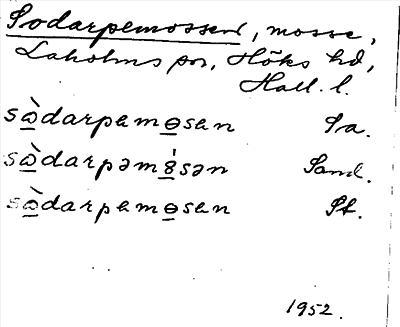 Sodarpemossen, mosse,
Laholms sn, Höks hd,
Hall. l.
sɷ̀darpəmɵsən Sa.
sɷ̀darpəmɵ́sən Sand.
sɷ̀darpəmɵsən St.
1952.